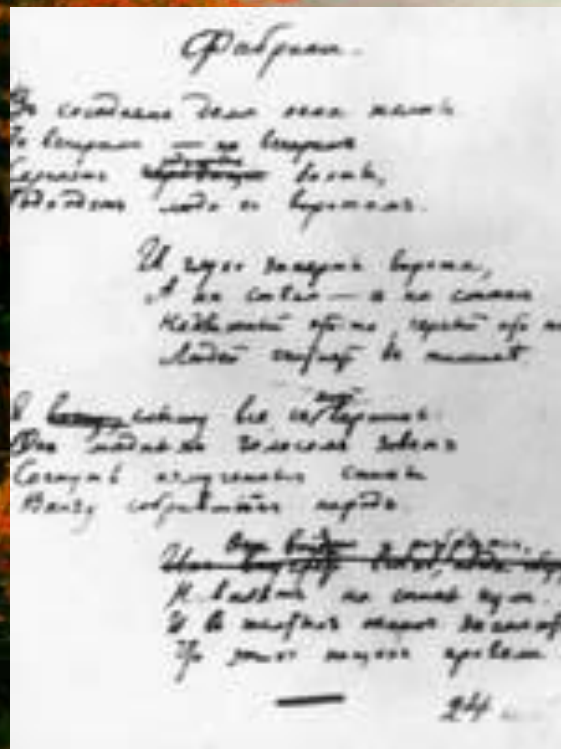 Фабрика.
Въ сосѣднемъ домѣ окна жолты
По вечерамъ — по вечерамъ
Скрипятъ болты,
Подходятъ люди къ воротамъ.
И глухо заперты ворота,
А на стѣнѣ — а на стѣнѣ
Недвижный кто-то, черный кто
Людей считаетъ въ тишинѣ.
Я слышу все съ вершины:
Онъ мѣднымъ голосомъ зоветъ
Согнуть измученныя спины
Внизу собравшійся народъ.
Они войдутъ и разбредутся,
Навалятъ на спины кули.
И въ желтыхъ окнахъ
Что этихъ нищихъ провели.
24